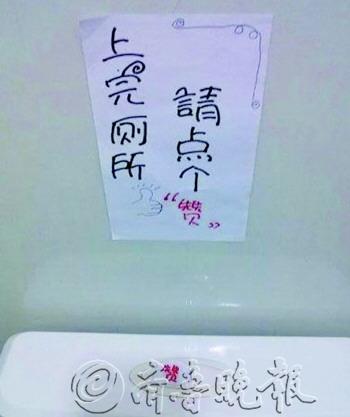 上完厕所
請点个
“赞”
赞
齐鲁晚报